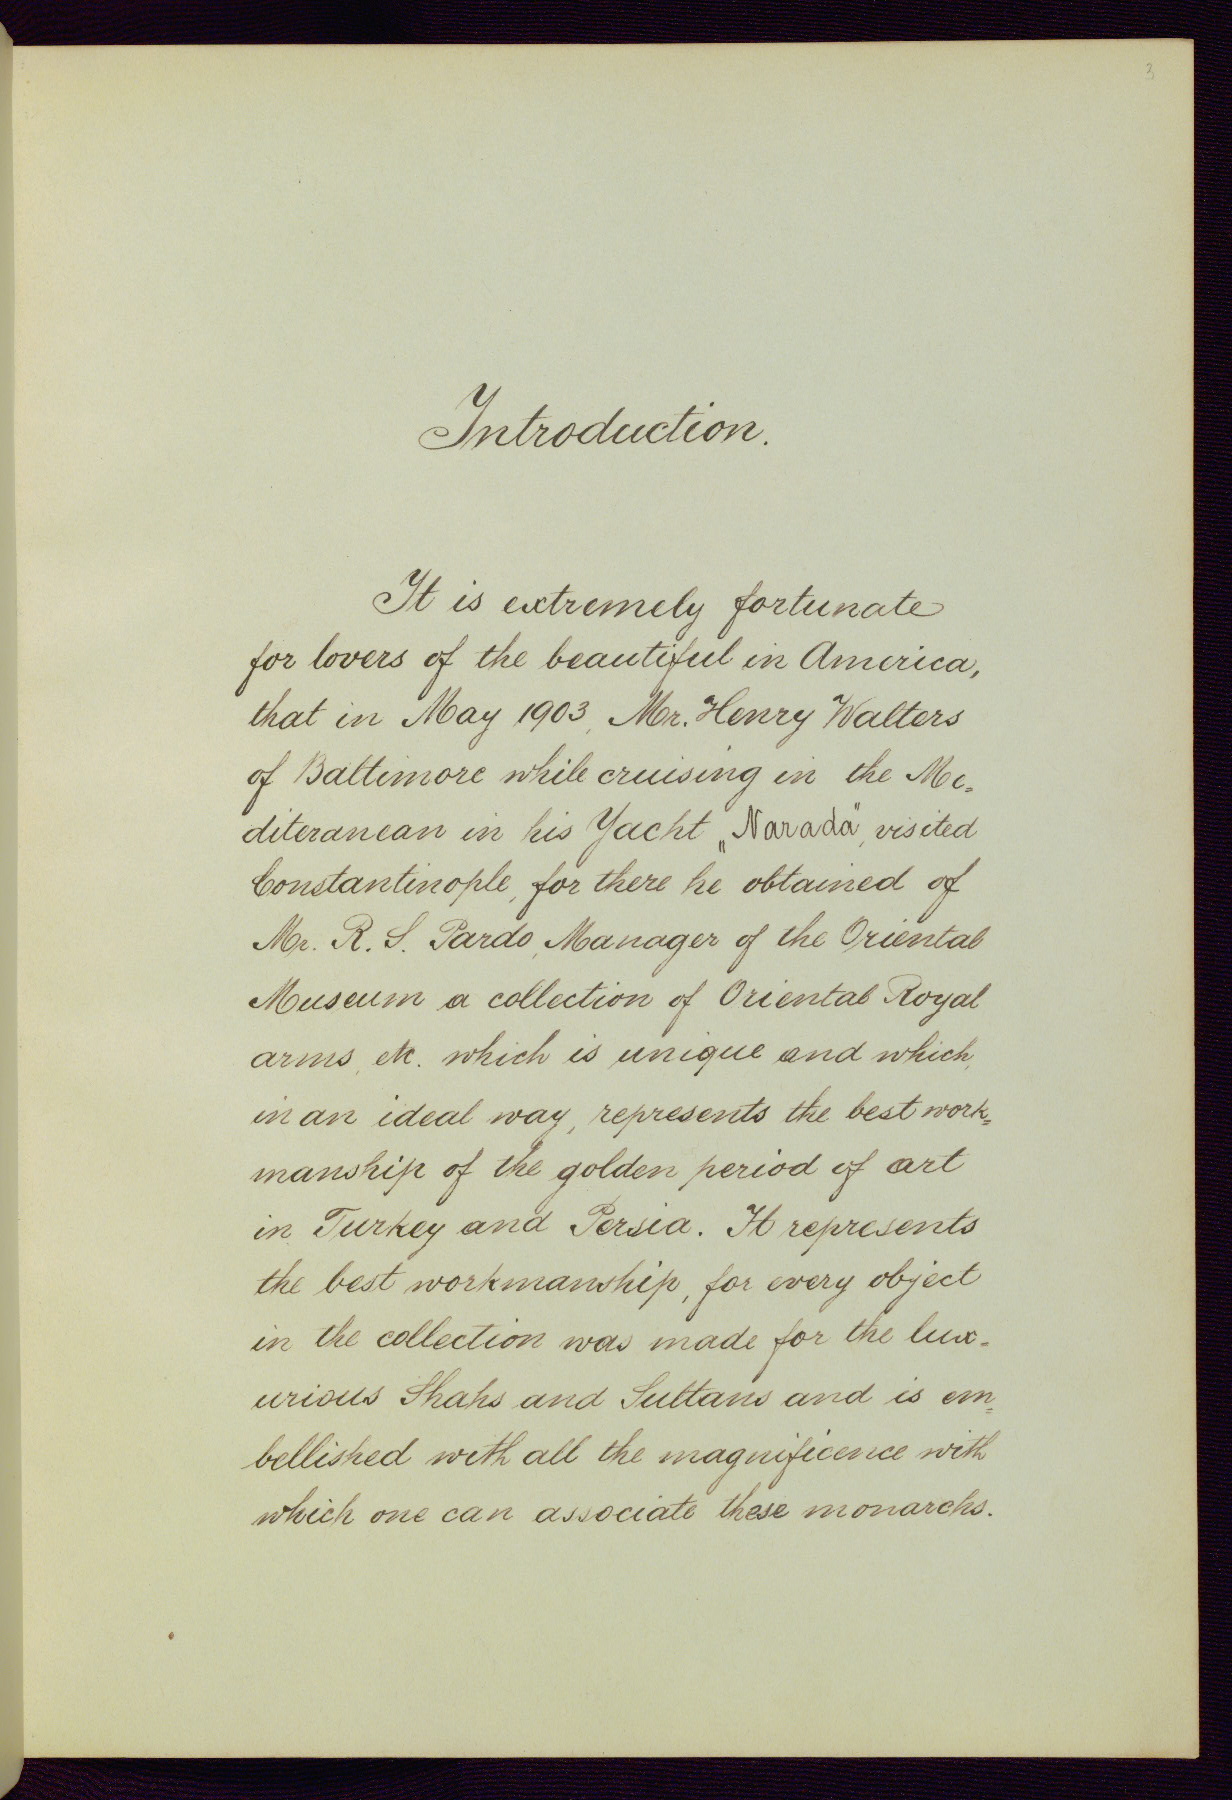 3
Introduction.
It is extremely fortunate
for lovers of the beautiful in America,
that in May 1903, Mr. Henry Walters
of Baltimore while cruising in the Me=
diteranean in his Yacht „Narada", visited
Constantinople, for there he obtained of
Mr. R. S. Pardo, Manager of the Oriental
Museum a collection of Oriental Royal
arms, etc. which is unique and which,
in an ideal way, represents the best work=
manship of the golden period of art
in Turkey and Persia. It represents
the best workmanship, for every object
in the collection was made for the lux-
urious Shahs and Sultans and is em=
bellished with all the magnificence with
which one can associate these monarchs.